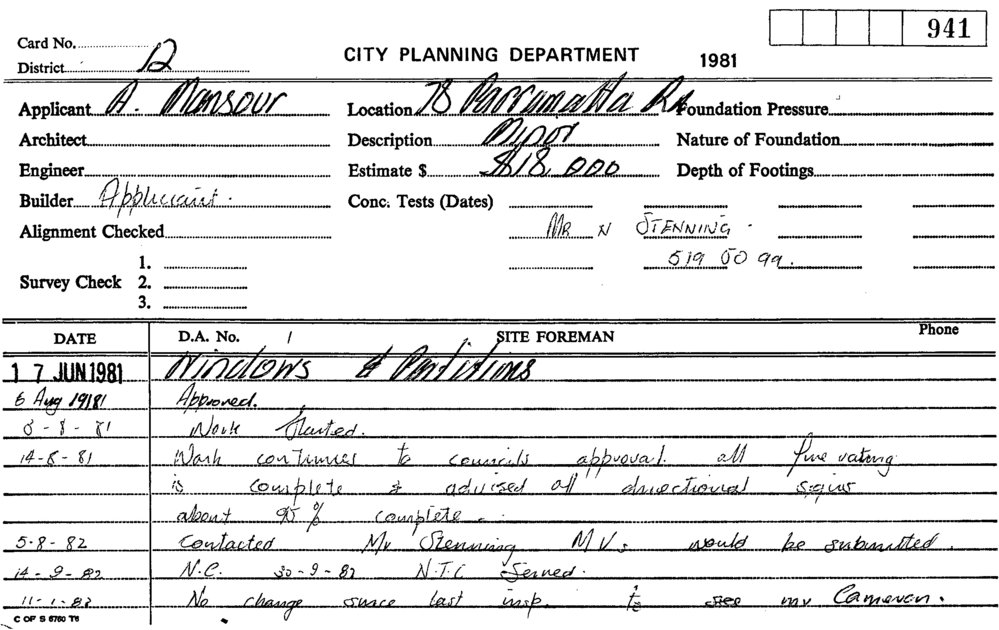 941
Card No.
District 12
CITY PLANNING DEPARTMENT 1981
Applicant A. Mansour Location 78 Parramatta Rd Foundation Pressure
Architect Description Minor Nature of Foundation
Engineer Estimate $ $18,000 Depth of Footings
Builder Applicant. Conc. Tests (Dates)
Alignment Checked MR N STENNING.
1. 519 50 99.
Survey Check 2.
3.
DATE D.A. No. / SITE FOREMAN Phone
17 JUN 1981 Windows & Partitions
6 Aug 1981 Approved.
8-8-81 Work Started.
14-8-81 Work continues to councils approval. all fire rating
is complete & advised all directional signs
about 95% complete.
5-8-82 Contacted Mr Stenning M.V.s would be submitted.
14-9-82 N.C. 30-9-82 N.T.C Served.
11-1-83 No change since last insp. to see mr Cameron.
C OF S 6760 T6